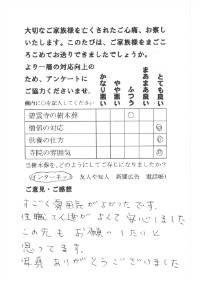 大切なご家族様を亡くされたご心痛、お察し
いたします。このたびは、ご家族様をまごころ
こめてお送りできましたでしょうか。
より一層の対応向上の
ため、アンケートに
ご協力くださいませ。
欄内に○を記入してください
とても良い
まあまあ良い
ふつう
やや悪い
かなり悪い
碧雲寺の樹木葬
僧侶の対応
供養の仕方
寺院の雰囲気
当樹木葬を、どのようにしてご存じになりましたか?
インターネット 友人や知人 新聞広告 電話帳
ご意見・ご感想
すごく雰囲気がよかったです。
住職さん達がよくて安心しました
この先もお願いしたいと
思ってます。
写真ありがとうございました